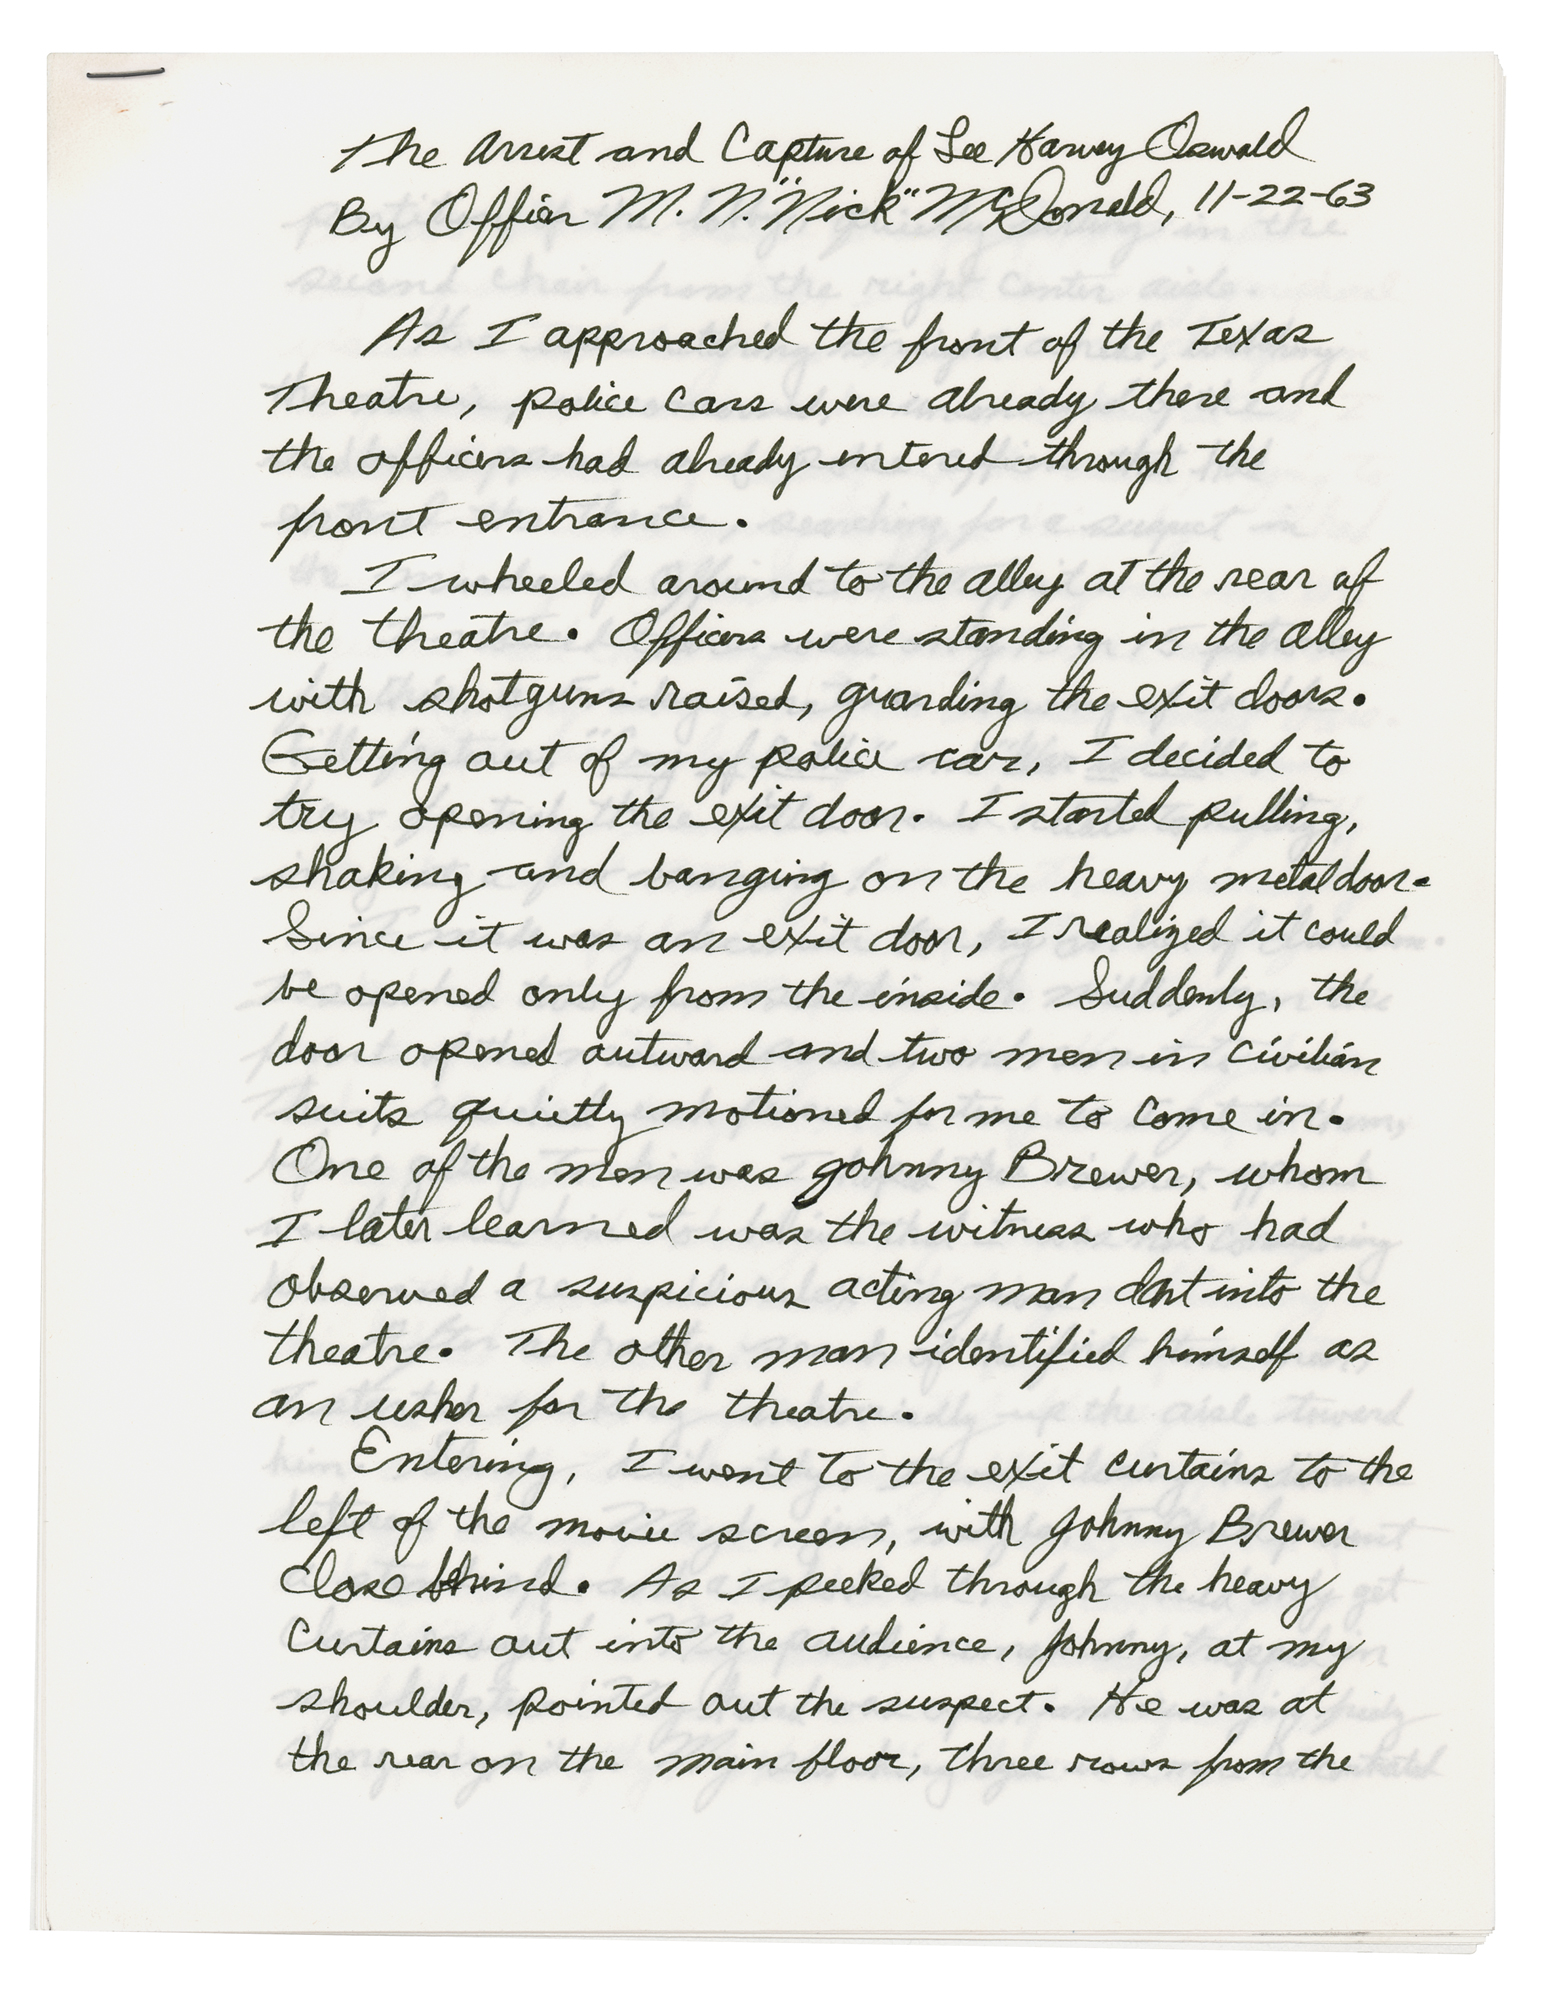 The Arrest and Capture of Lee Harvey Oswald
By Officer M. N. "Nick" McDonald, 11-22-63
As I approached the front of the Texas
Theatre, police cars were already there and
the officers had already entered through the
front entrance.
I wheeled around to the alley at the rear of
the theatre. Officers were standing in the alley
with shotguns raised, guarding the exit doors.
Getting out of my police car, I decided to
try opening the exit door. I started pulling,
shaking and banging on the heavy metal door.
Since it was an exit door, I realized it could
be opened only from the inside. Suddenly, the
door opened outward and two men in civilian
suits quietly motioned for me to come in.
One of the men was Johnny Brewer, whom
I later learned was the witness who had
observed a suspicious acting man dart into the
theatre. The other man identified himself as
an usher for the theatre.
Entering, I went to the exit curtains to the
left of the movie screen, with Johnny Brewer
close behind. As I peeked through the heavy
curtains out into the audience, Johnny, at my
shoulder, pointed out the suspect. He was at
the rear on the main floor, three rows from the